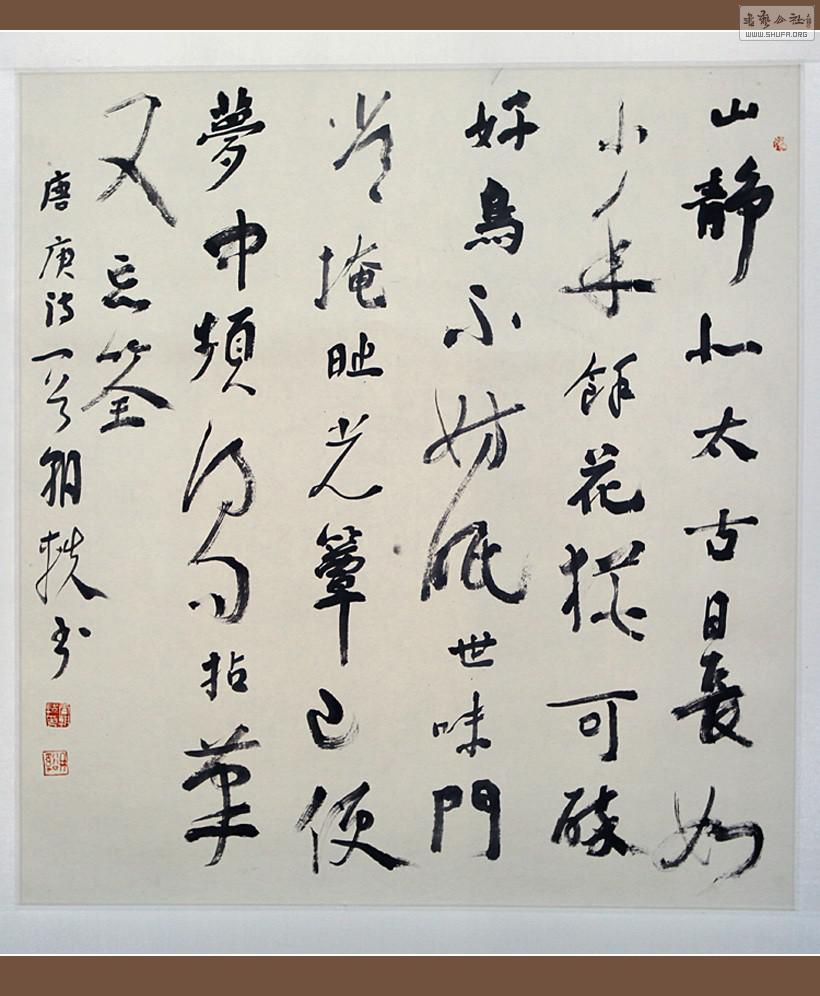 山靜似太古日長如
小年餘花猶可醉
好鳥不妨眠世味門
常掩時光簟已便
夢中頻得句拈筆
又忘筌
唐庚诗一首书
書藝公社
WWW.SHUFA.ORG